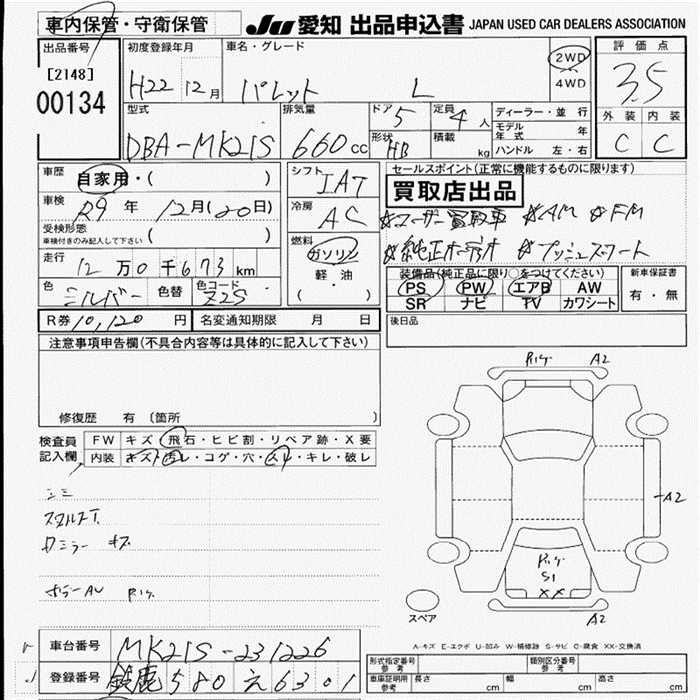 車内保管・守衛保管
JU 愛知 出品申込書 JAPAN USED CAR DEALERS ASSOCIATION
出品番号
[2148]
00134
初度登録年月
H22 12月
車名・グレード
パレット L
2WD
4WD
評価点
3.5
外装 内装
C C
型式
DBA-MK21S
排気量
660cc
ドア 5
形状 HB
定員 4人
積載 kg
ディーラー・並行
モデル年式 年
ハンドル 左・右
車歴 自家用・( )
車検 R9年 12月(20日)
受検形態
車検付きのみ記入して下さい ( )
走行 12万0千673km
色 シルバー 色替 色コード Z2S
シフト IAT
冷房 AC
燃料
ガソリン
軽・油
( )
セールスポイント(正常に機能するものに限ります)
買取店出品
☆ユーザー買取車 ☆AM ☆FM
☆純正オーディオ ☆プッシュスタート
装備品(純正品に限り○をつけてください)
PS PW エアB AW
SR ナビ TV カワシート
新車保証書
有・無
R券 10,120円 名変通知期限 月 日
後日品
注意事項申告欄(不具合内容等は具体的に記入して下さい)
修復歴 有 (箇所 )
検査員記入欄
FW キズ・飛石・ヒビ割・リペア跡・X要
内装 キズ・汚レ・コゲ・穴・スレ・キレ・破レ
シミ
キズ
リケ A2
A2
リケ
S1
XX
A2
スペア
A-キズ E-エクボ U-凹み W-補修跡 S-サビ C-腐食 XX-交換済
車台番号 MK21S-231226
登録番号 鈴鹿580え6301
形式指定番号 参考
類別区分番号 参考
車庫証明用 参考 長さ cm 幅 cm 高さ cm